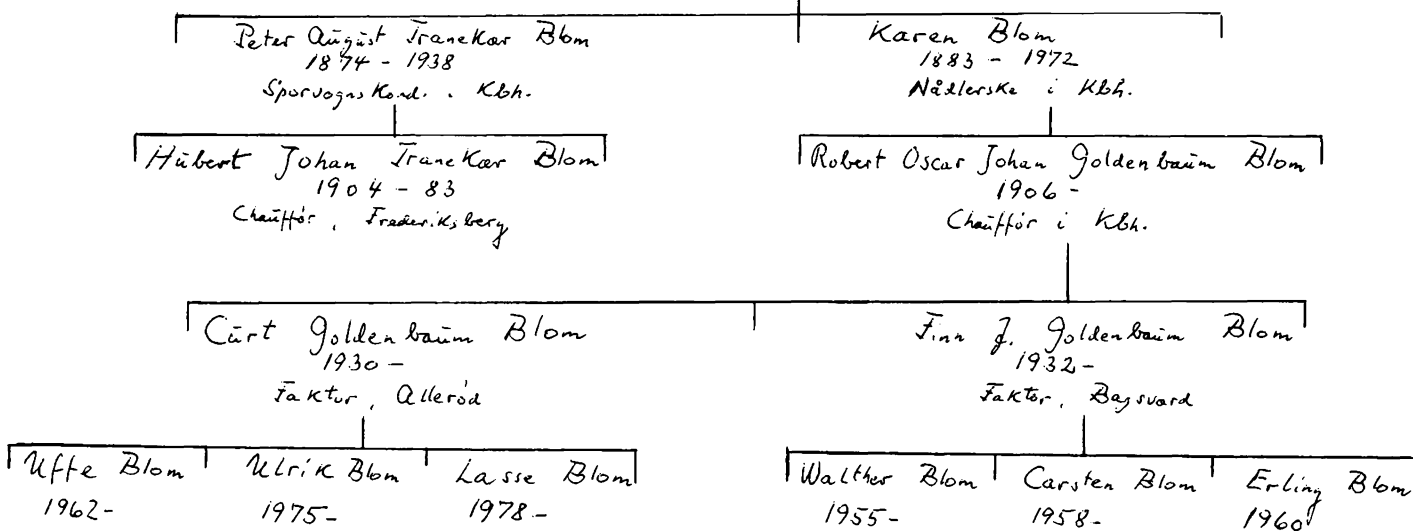 Peter August Tranekær Blom
1874 - 1938
Sporvogns Kond. . Kbh.
Karen Blom
1883 - 1972
Nådlerske i Kbh.
Hubert Johan Tranekær Blom
1904 - 83
Chauffør, Frederiksberg
Robert Oscar Johan Goldenbaum Blom
1906 -
Chauffør i Kbh.
Curt Goldenbaum Blom
1930 -
Faktor, Allerød
Finn J. Goldenbaum Blom
1932 -
Faktor, Bagsværd
Uffe Blom
1962-
Ulrik Blom
1975-
Lasse Blom
1978-
Walther Blom
1955-
Carsten Blom
1958-
Erling Blom
1960